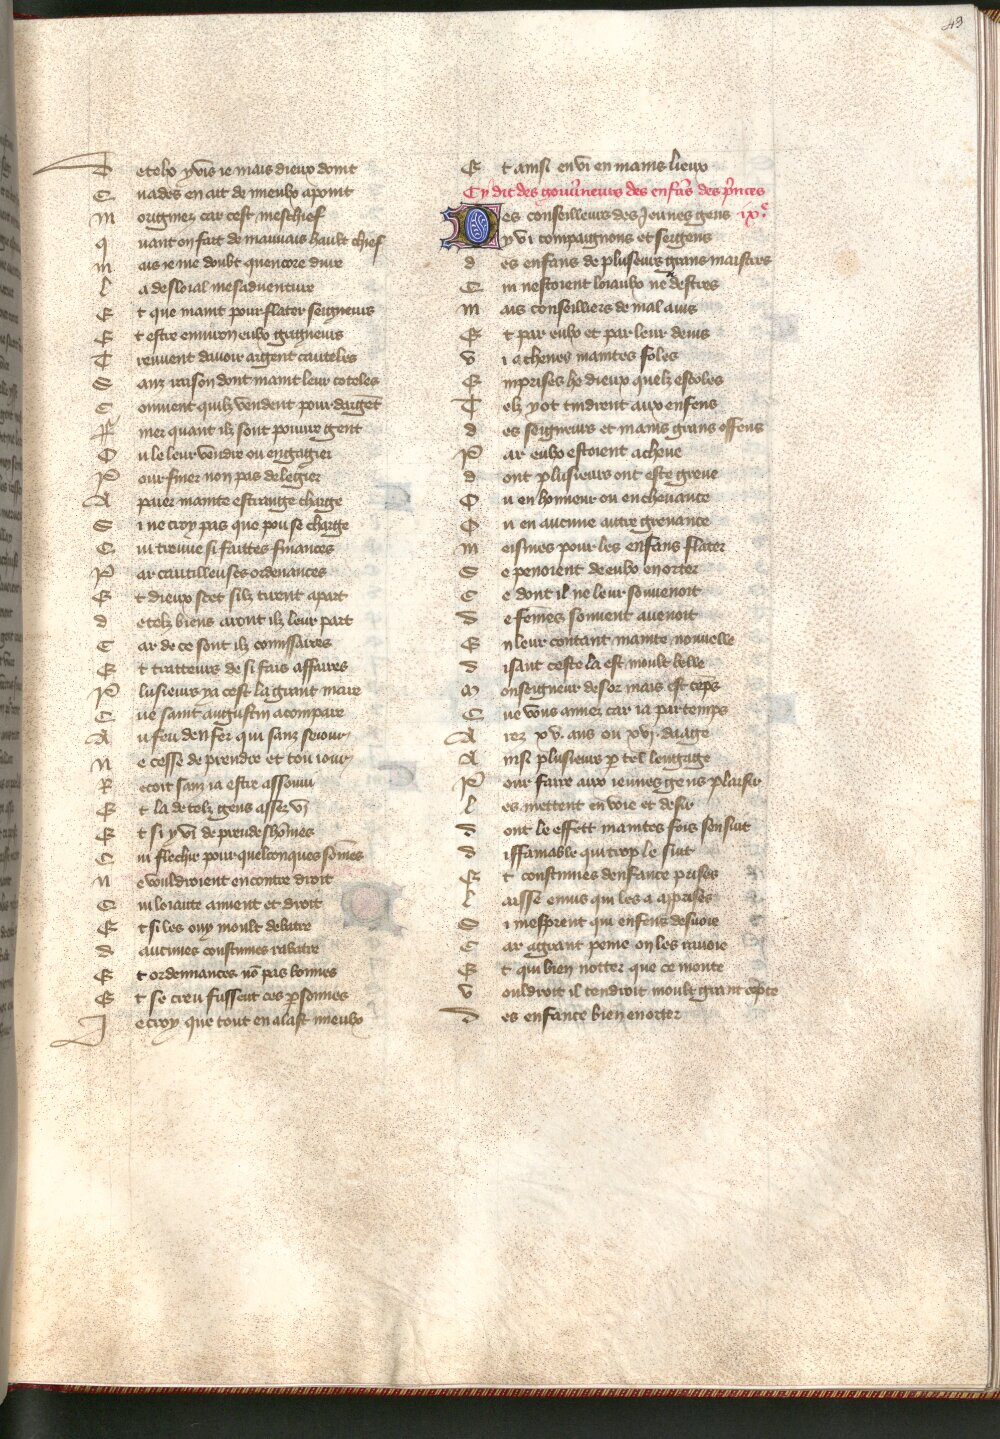 49
De telz y vis ie mais dieux doint
Cuades en ait de mieulx apoint
Moriginez car cest meschief
Quant on fait de mauuais hault chief
Mais ie me doubt quencore dure
La desloial mesaduenture
Et que maint pour flater seigneurs
Et estre enuiron eulx gaigneurs
Treuuent dauoir argent cauteles
Sanz raison dont maint leur coteles
Conuient quilz vendent pour dargēt
Finer quant ilz sont poure gent
Ou le leur vendre ou engagier
Pour finer non pas de legier
A paier mainte estrange charge
Si ne croy pas que pou se charge
Cui treuue si faittes finances
Par cautilleuses ordenances
Et dieux scet silz tirent apart
De telz biens aront ilz leur part
Car de ce sont ilz comissaires
Et traitteurs de si fais affaires
Plusieurs ya cest la grant mare
Que saint augustin acompare
Au feu denfer qui sanz seiour
Ne cesse de prendre et tou iour
Recoit sanz ia estre assouui
Et la de telz gens assez vi
Et si y vi de preudeshōmes
Cui flechir pour quelconques sōmes
Ne vouldroient encontre droit
Cui loiaute aiment et droit
Et si les ouy moult debatre
Daucunes coustumes rabatre
Et ordennances nō pas bonnes
Et se creu fussent ces psonnes
Je croy que tout en alast mieulx
Et ainsi en vi en mains lieux
Cy dit des gouuneurs des enfās des pinces
Des conseilleurs des Jeunes gens ix.e
Y vi compaignons et sergens
Des enfans de pluseurs grans maistres
Cui nestoient loiaulx ne destres
Mais conseilliers de mal auis
Et par eulx et par leur deuis
Vi acheues maintes foles
Emprises he dieux quelz escoles
Telz y ot tindrent aux enfens
Des seigneurs et mains grans offens
Par eulx estoient acheue
Dont plusieurs ont este greue
Ou en honneur ou en cheuance
Ou en aucune autre greuance
Meismes pour les enfans flater
Se penoient de eulx enorter
Ce dont il ne leur souuenoit
De fēmes souuent auenoit
En leur contant mainte nouuelle
Disant ceste la est moult belle
Monseigneur desor mais est tēps
Que vous amez car ia par temps
Arez xv. ans ou xvj. daage
Ainsi plusieurs p tel lengage
Pour faire aux ieunes gens plaisir
Les mettent en voie et desir
Dont le effett maintes fois sensuit
Diffamable qui trop le suit
Et coustumes denfance prises
Laisse enuis qui les a apprises
Si mesprent qui enfens desuoie
Car agrant peine on les rauoie
Et qui bien notter que ce monte
Vouldroit il tendroit moult grant cōpte
Des enfance bien enorter